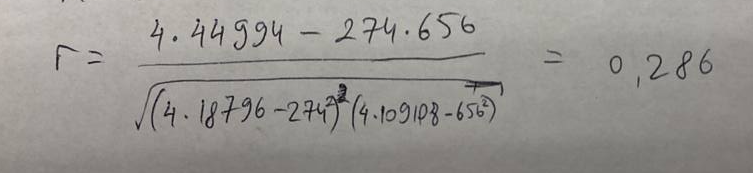 r = (4·44994 − 274·656) / √((4·18796 − 274²)(4·109108 − 656²)) = 0,286